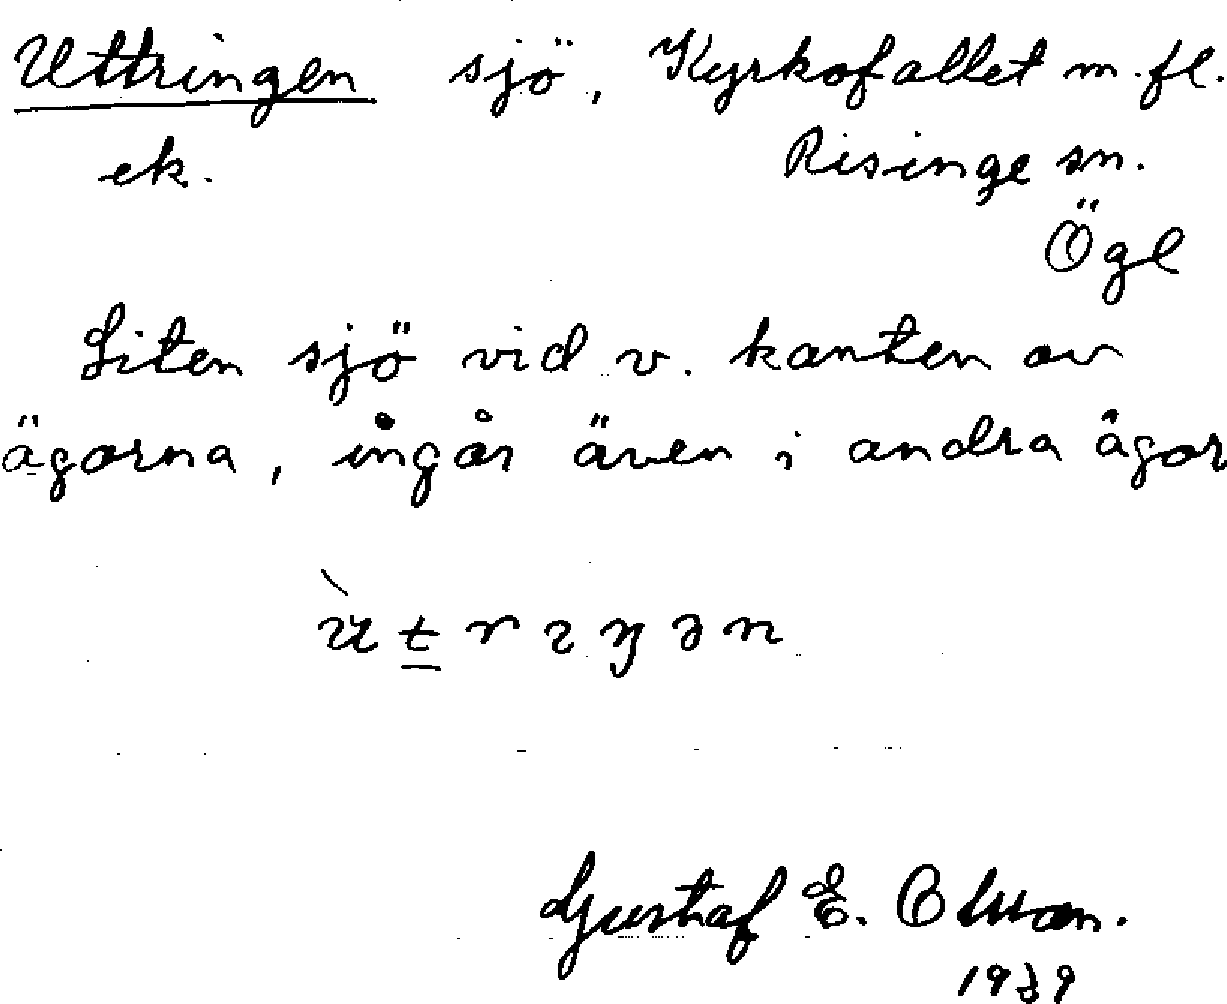 Uttringen sjö, Kyrkofallet m.fl.
ek. Risinge sn.
Ögl
Liten sjö vid v. kanten av
ägorna, ingår även i andra ägor
Gustaf E.
1939